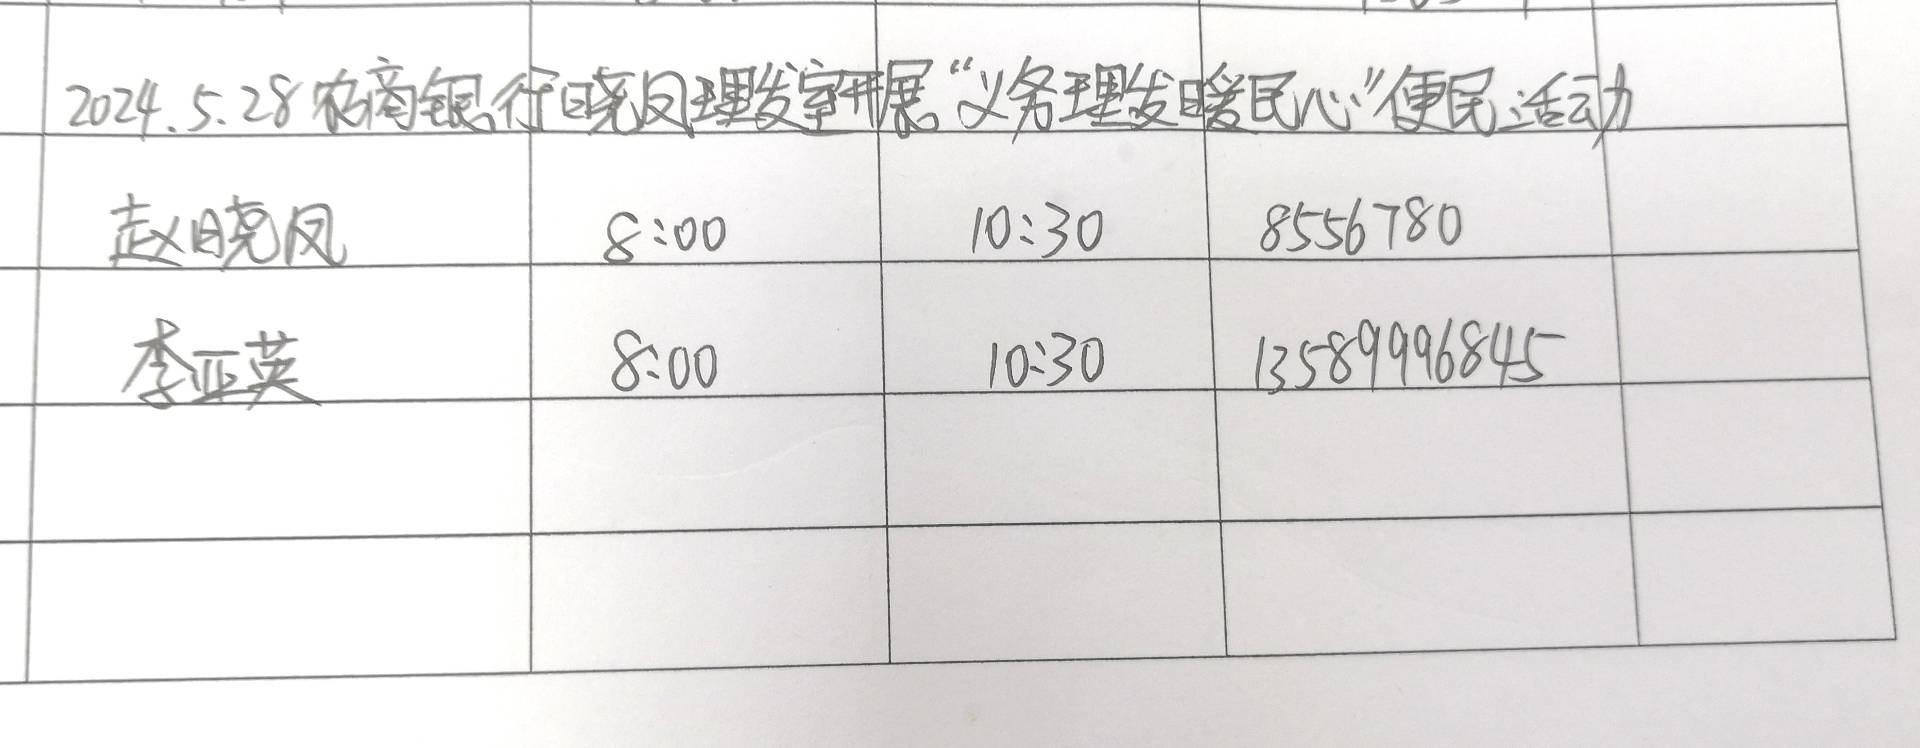 2024.5.28农商银行晓凤理发室开展“义务理发暖民心”便民活动
赵晓凤 8:00 10:30 8556780
李亚英 8:00 10:30 13589996845